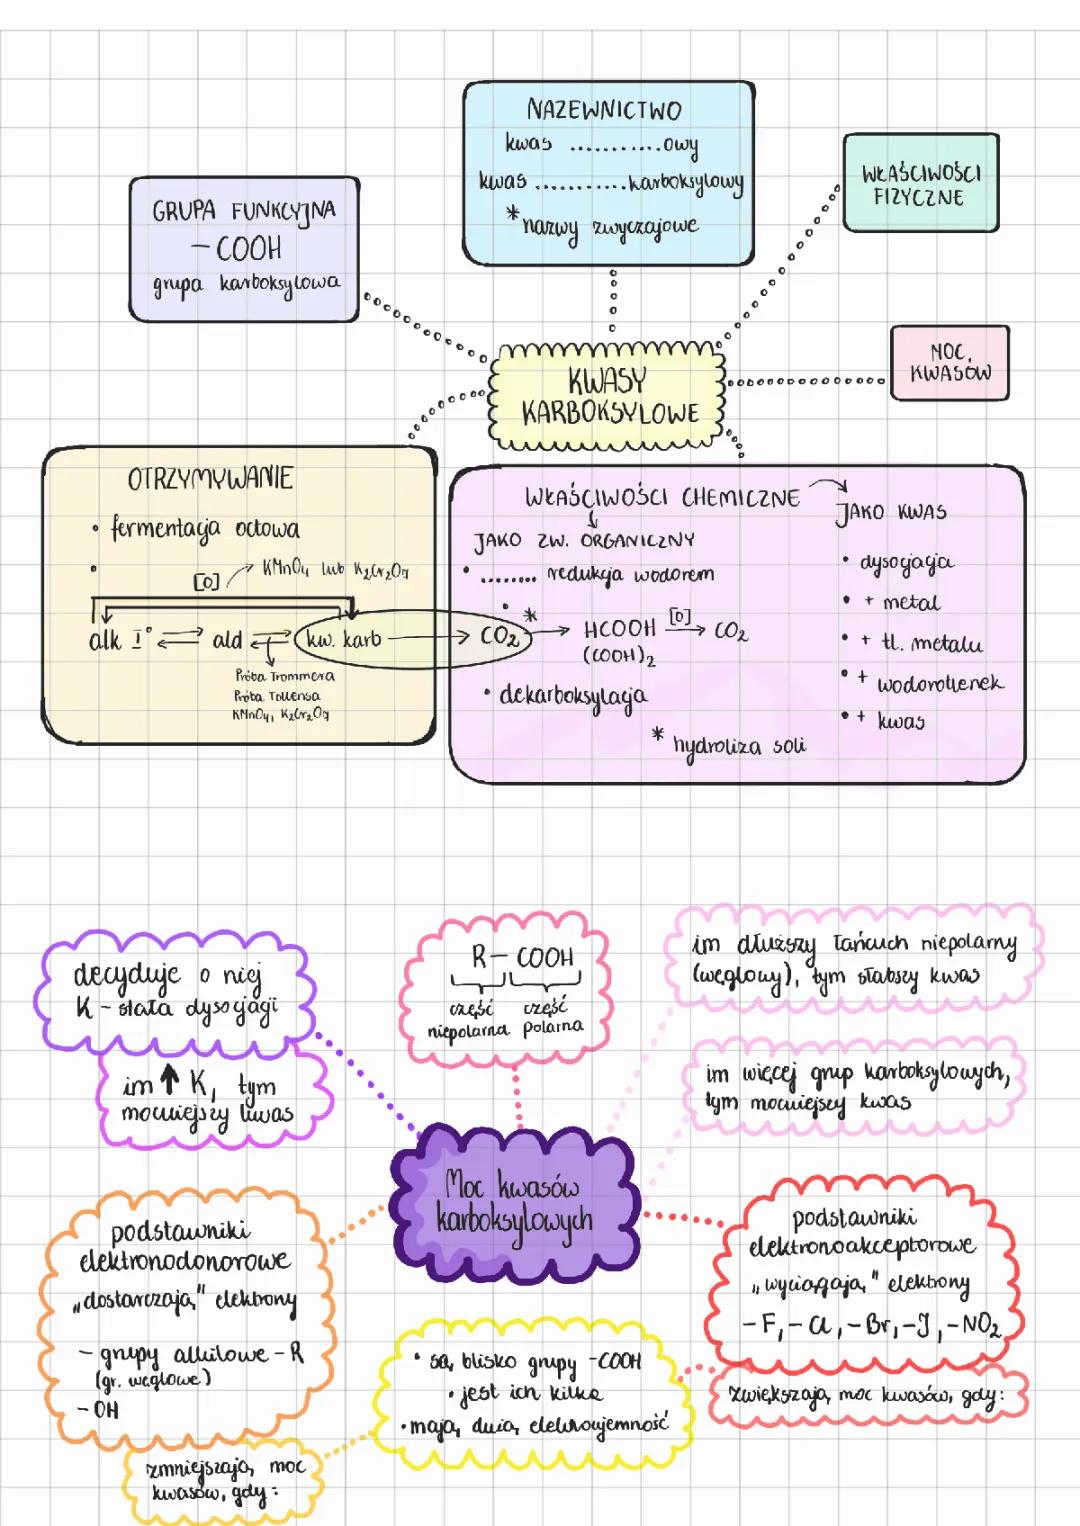 NAZEWNICTWO
kwas ...........owy
kwas ...........karboksylowy
* nazwy zwyczajowe
WŁAŚCIWOŚCI
FIZYCZNE
GRUPA FUNKCYJNA
– COOH
grupa karboksylowa
MOC
KWASÓW
KWASY
KARBOKSYLOWE
OTRZYMYWANIE
• fermentacja octowa
•
[O] → KMnO4 lub K2Cr2O7
alk I° ⇄ ald ⇄ kw. karb → CO2
Próba Trommera
Próba Tollensa
KMnO4, K2Cr2O7
WŁAŚCIWOŚCI CHEMICZNE
JAKO ZW. ORGANICZNY
• ........ redukcja wodorem
• * → HCOOH [O] → CO2
(COOH)2
• dekarboksylacja
* hydroliza soli
JAKO KWAS
• dysocjacja
• + metal
• + tl. metalu
• + wodorotlenek
• + kwas
decyduje o niej
K – stała dysocjacji
im ↑ K, tym
mocniejszy kwas
R – COOH
część część
niepolarna polarna
im dłuższy łańcuch niepolarny
(węglowy), tym słabszy kwas
im więcej grup karboksylowych,
tym mocniejszy kwas
Moc kwasów
karboksylowych
podstawniki
elektronodonorowe
„dostarczają” elektrony
– grupy alkilowe – R
(gr. węglowe)
– OH
zmniejszają moc
kwasów, gdy:
• są blisko grupy -COOH
• jest ich kilka
• mają dużą elektroujemność
podstawniki
elektronoakceptorowe
„wyciągają” elektrony
– F, – Cl, – Br, – J, – NO2
zwiększają moc kwasów, gdy: